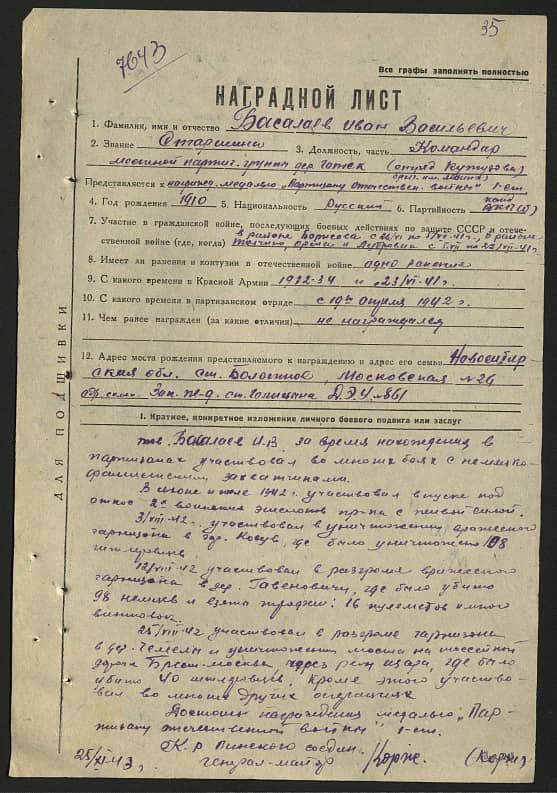 35
7643
Все графы заполнять полностью
НАГРАДНОЙ ЛИСТ
1. Фамилия, имя и отчество Басалаев Иван Васильевич
2. Звание Старшина 3. Должность, часть Командир
группы (отряд Кутузова)
Представляется к медалью "Партизану отечествен. войны" I-ст.
4. Год рождения 1910 5. Национальность Русский 6. Партийность канд ВКП(б)
7. Участие в гражданской войне, последующих боевых действиях по защите СССР и отече-
ственной войне (где, когда)
8. Имеет ли ранения и контузии в отечественной войне одно ранение
9. С какого времени в Красной Армии 1932-34 и 23/VI-41 г.
10. С какого времени в партизанском отряде с 19го апреля 1942 г.
11. Чем ранее награжден (за какие отличия) не награждался
12. Адрес места рождения представляемого к награждению и адрес его семьи Новосибир-
ская обл. ст. Болотное, Московская №26
Зап. ж-д. ст. Голицына
ДЛЯ ПОДШИВКИ
I. Краткое, конкретное изложение личного боевого подвига или заслуг
тов. Басалаев И.В. за время нахождения в
партизанах участвовал во многих боях с немецко-
фашистскими захватчиками.
В июне и июле 1942 г. участвовал в пуске под
откос 2х воинских эшелонов пр-ка с живой силой.
3/VIII-42 г. участвовал в уничтожении вражеского
гарнизона в гор. Косув, где было уничтожено 108
гитлеровцев.
12/VIII-42 участвовал в разгроме вражеского
гарнизона в дер. Гавеновичи, где было убито
98 немцев и взяты трофеи: 16 пулеметов и много
винтовок.
25/VIII-42 участвовал в разгроме гарнизона
в дер. Чемелы и уничтожении моста на шоссейной
дороге Брест-Москва, через реку Щара, где было
убито 40 гитлеровцев. Кроме этого участво-
вал во многих других операциях
Достоин награждения медалью "Пар-
тизану отечественной войны" I-ст.
К-р Пинского соедин.
генерал-майор Корж. (Корж)
25/XI-43 г.